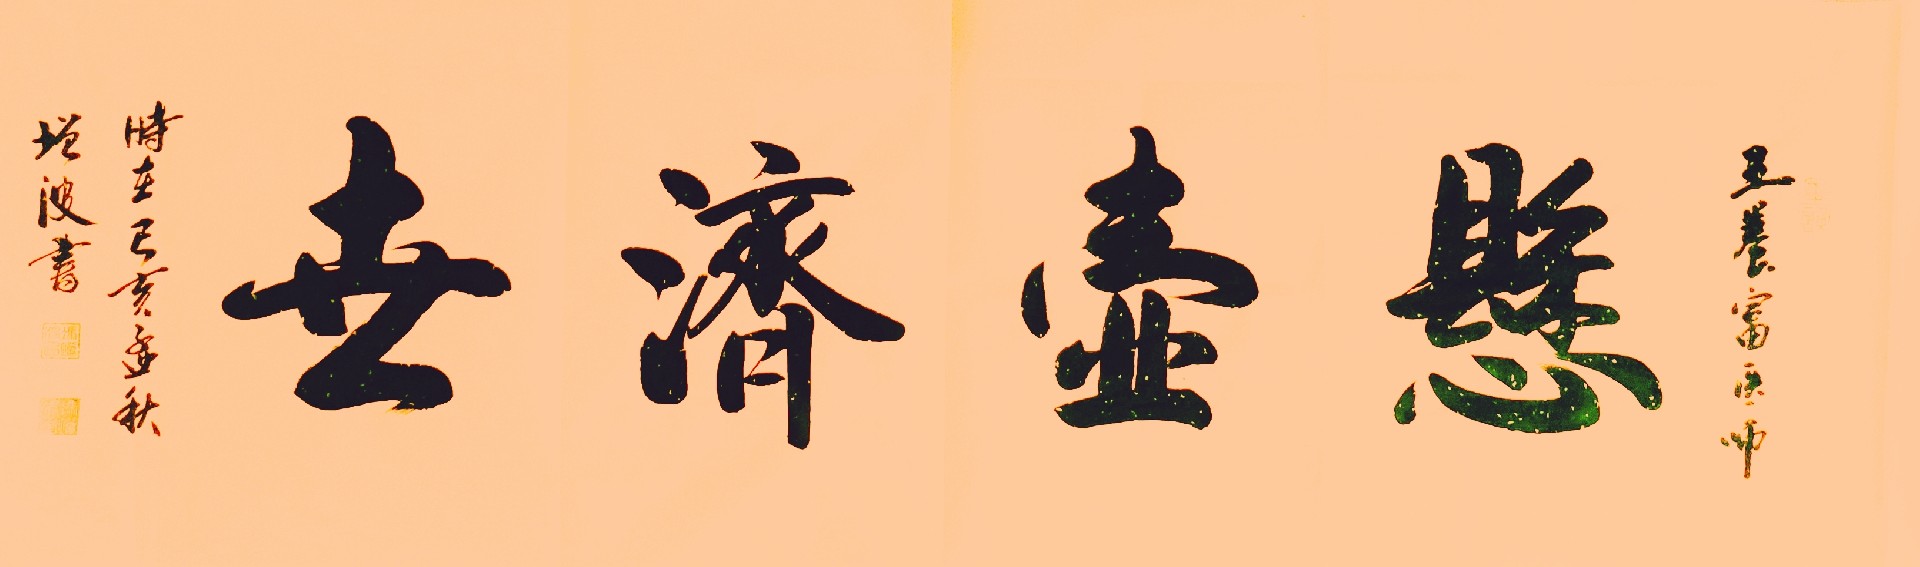 王養富医师
懸壺濟世
時在己亥孟秋
增波書